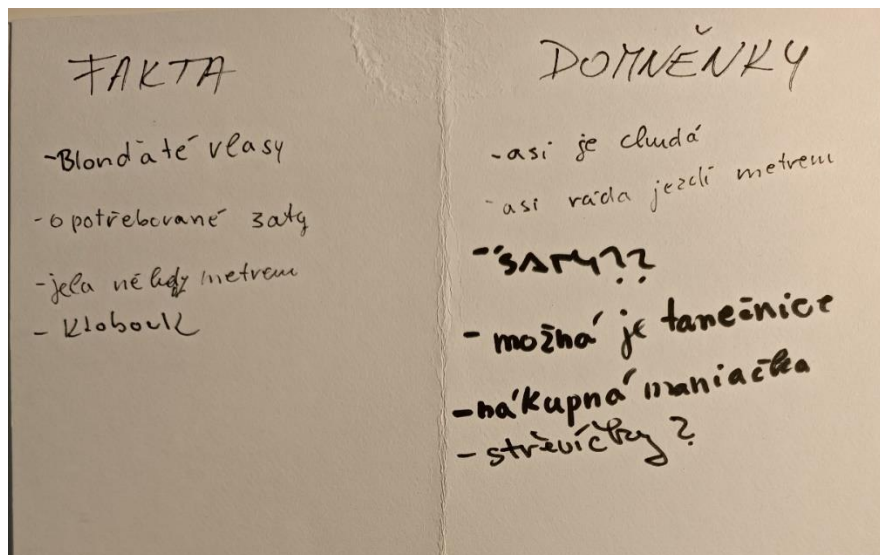 FAKTA
-Blonďaté vlasy
-opotřebované šaty
-jela někdy metrem
- Klobouk
DOMNĚNKY
-asi je chudá
-asi ráda jezdí metrem
-ŠATY??
- možná je tanečnice
-nákupná maniačka
- střevíčky?